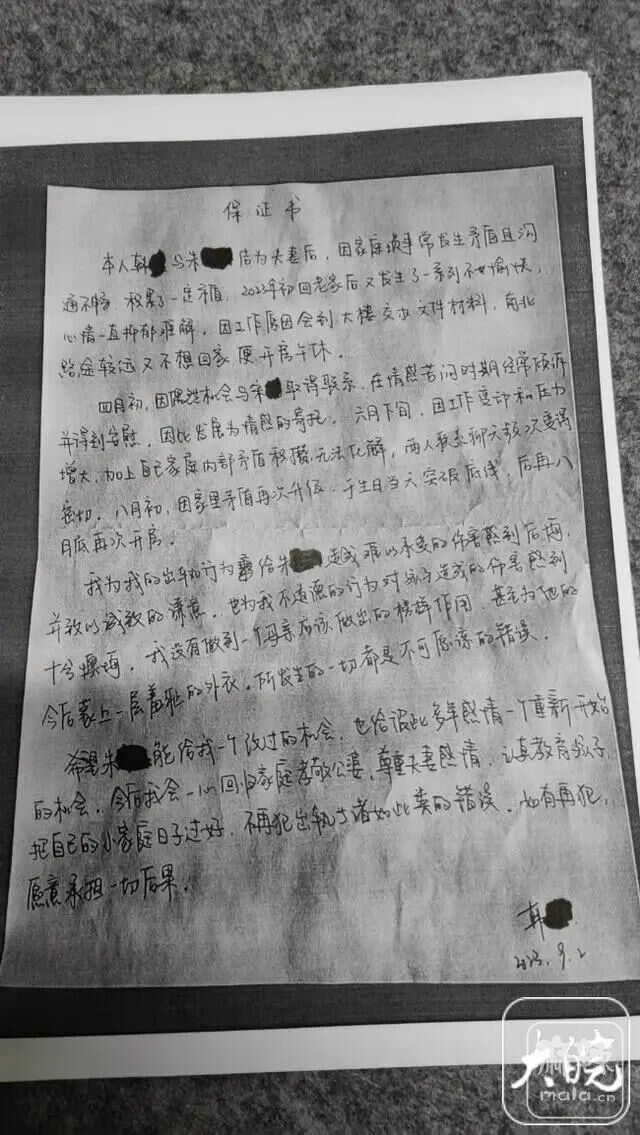 保证书
本人韩 与朱 结为夫妻后，因家庭琐事常发生矛盾且沟
通不畅，积累了一定矛盾，2023年初回老家后又发生了一系列不愉快，
心情一直抑郁难解，因工作原因会到大楼交办文件材料，南北
路途较远又不想回家便开房午休。
四月初，因偶然机会与朱 取得联系，在情感苦闷时期经常倾诉
并得到安慰，因此发展为情感的寄托。六月下旬，因工作变动和压力
增大，加上自己家庭内部矛盾积攒无法化解，两人联系聊天数次变得
密切。八月初，因家里矛盾再次升级，于生日当天突破底线，后再八
月底再次开房。
我为我的出轨行为 给朱 造成难以承受的伤害感到后悔，
并致以诚致的谦意，也为我不道德的行为对孩子造成的伤害感到
十分懊悔，我没有做到一个母亲应该做出的榜样作用，甚至为他的
今后蒙上一层羞耻的外衣，所发生的一切都是不可原谅的错误。
希望朱 能给我一个改过的机会，也给彼此多年感情一个重新开始
的机会，今后我会一心回归家庭孝敬公婆，尊重夫妻感情，认真教育孩子，
把自己的小家庭日子过好，不再犯出轨诸如此类的错误，如有再犯，
愿意承担一切后果。
韩
2023.9.2
大皖
mala.cn